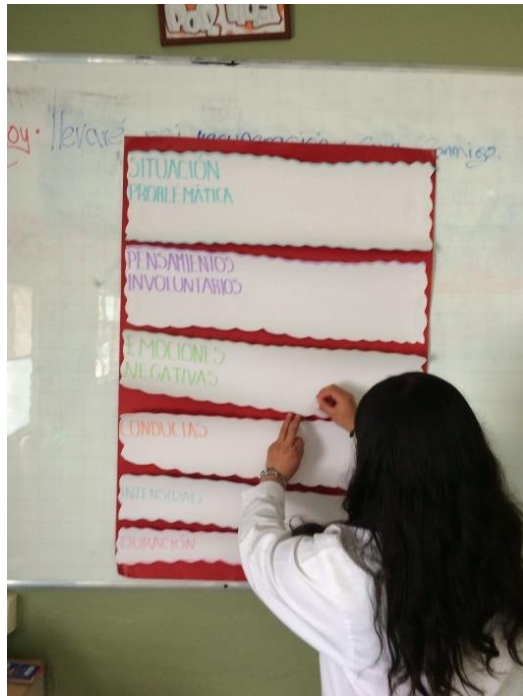 POR HOY
oy. llevaré mi recuperación conmigo.
SITUACIÓN
PROBLEMÁTICA
PENSAMIENTOS
INVOLUNTARIOS
EMOCIONES
NEGATIVAS
CONDUCTAS
INTENSIDAD
DURACIÓN